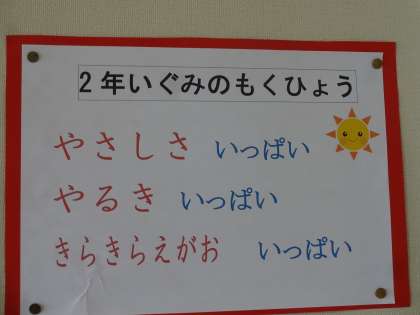 2年いぐみのもくひょう
やさしさ いっぱい
やるき いっぱい
きらきらえがお いっぱい